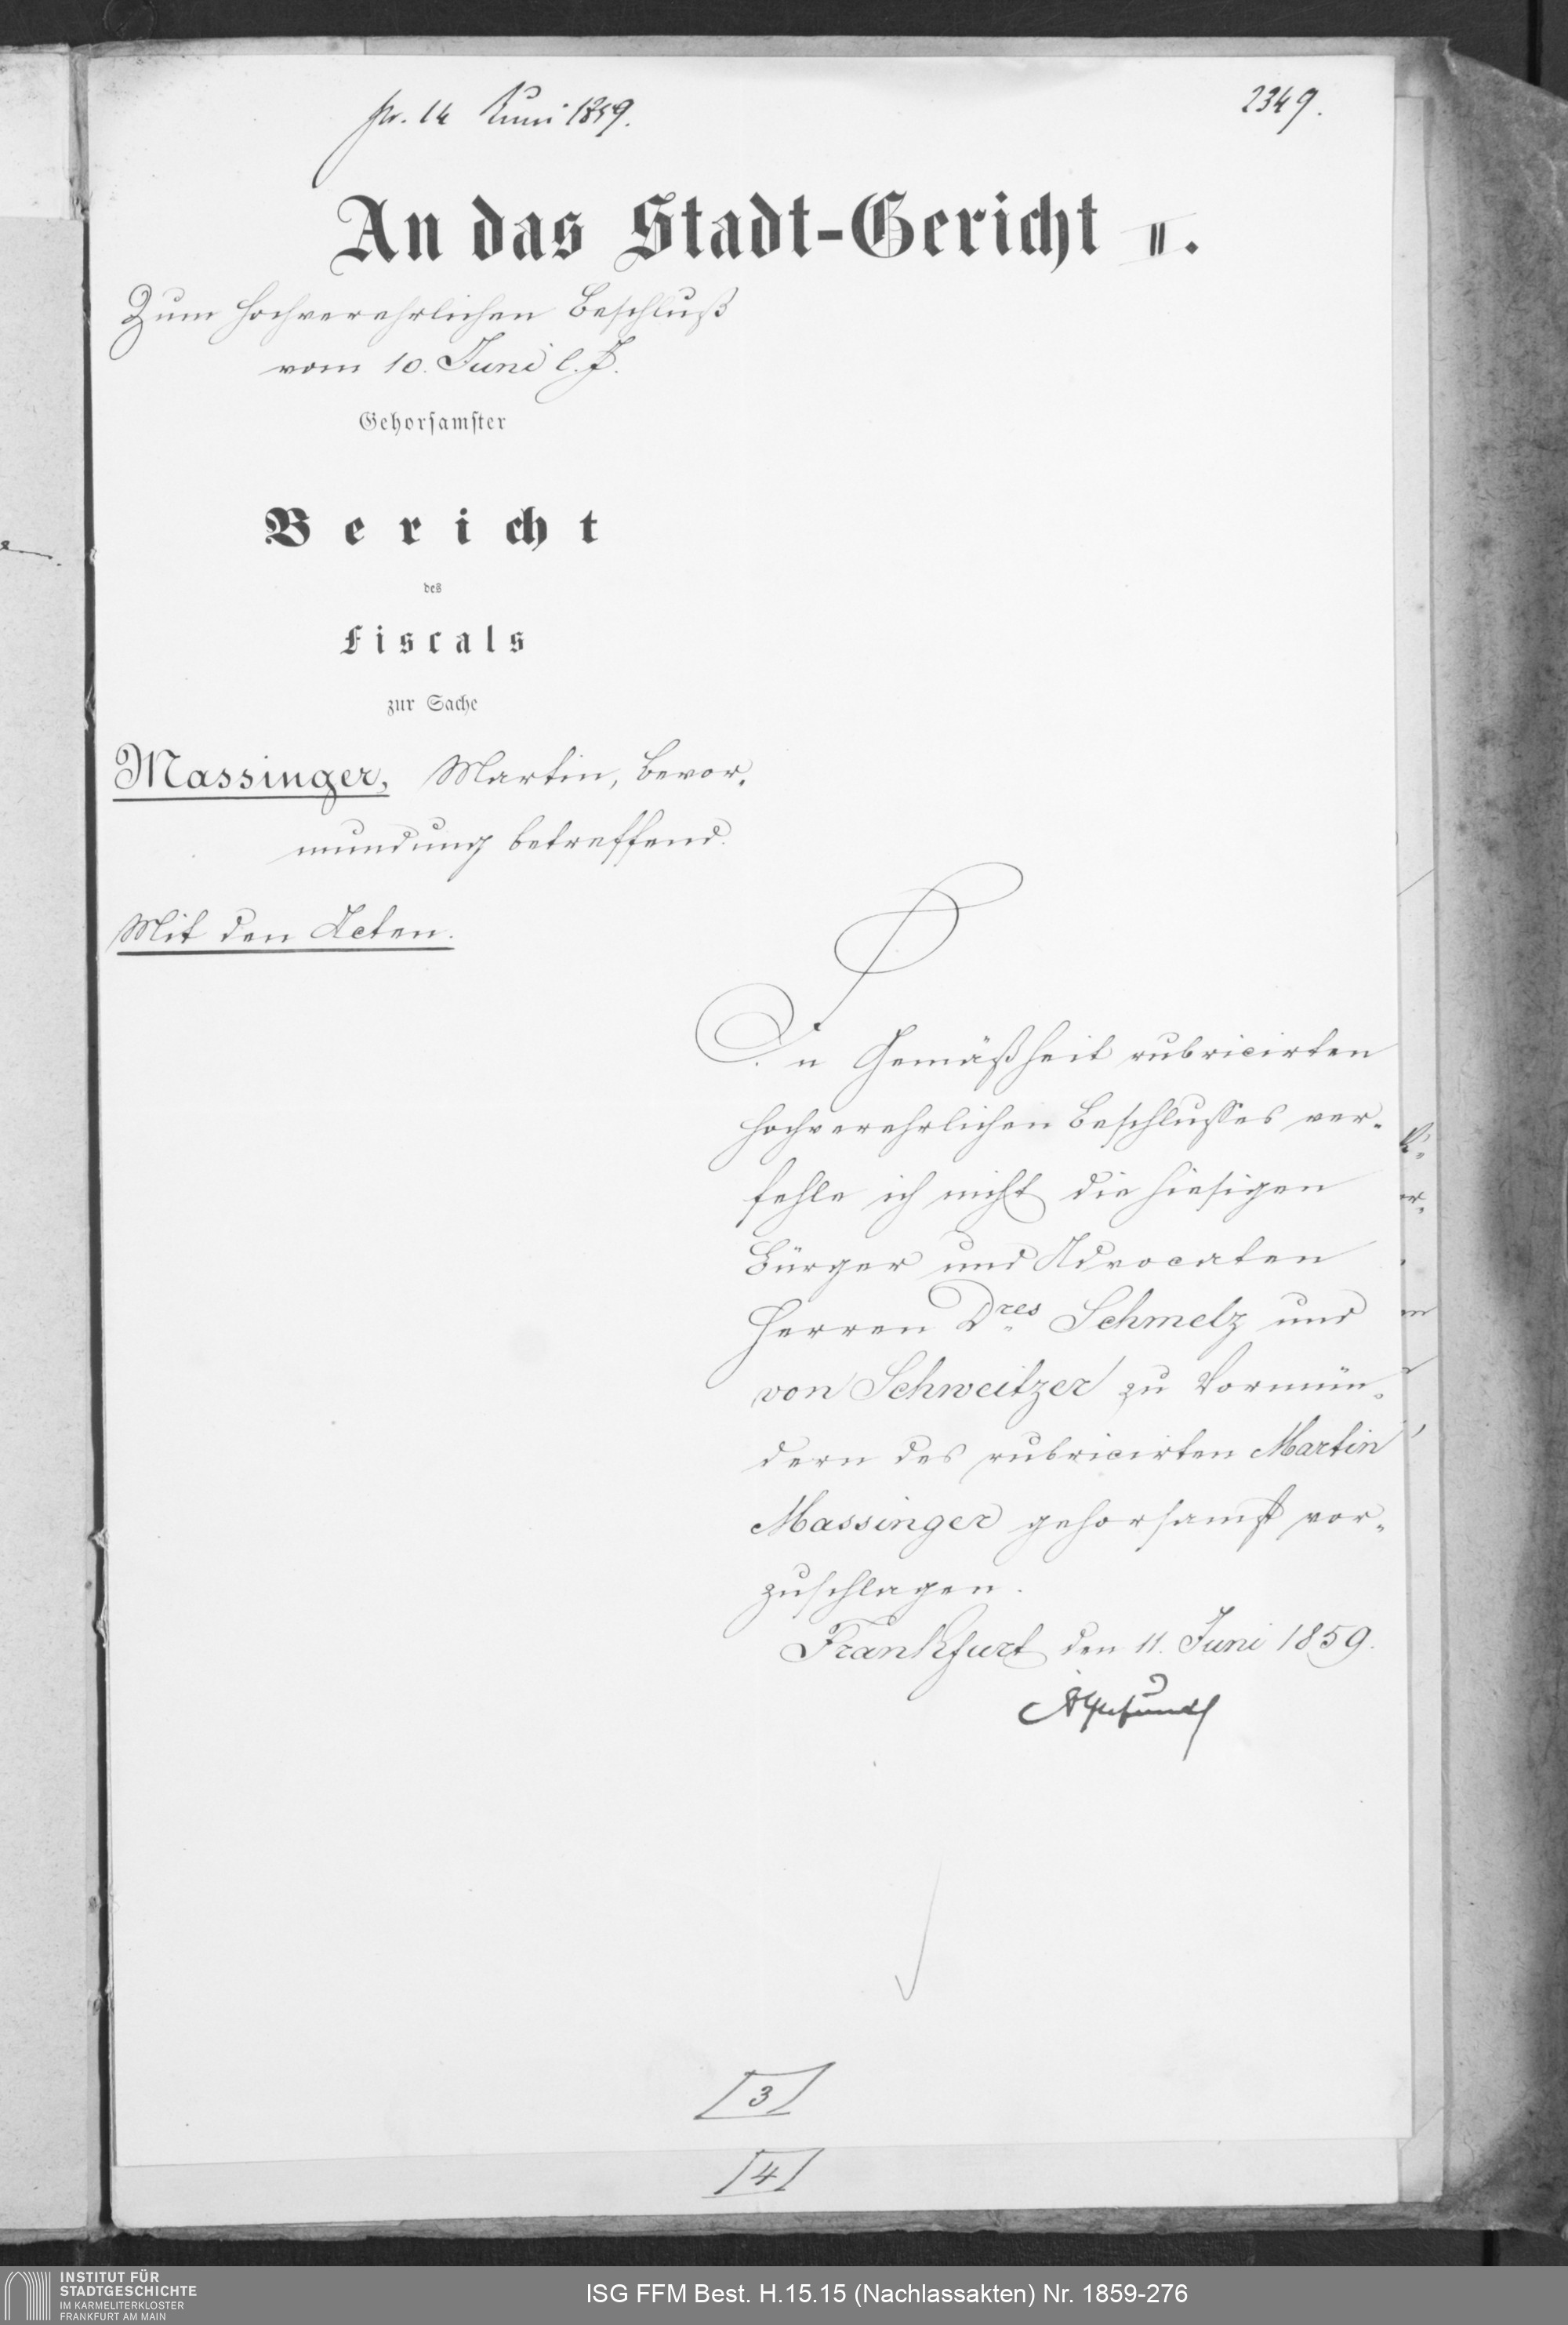 pr. 14 Juni 1859.
2349.
An das Stadt-Gericht II.
Zum hochverehrlichen Beschluß
vom 10. Juni l. J.
Gehorsamster
Bericht
des
Fiscals
zur Sache
Massinger, Martin, Bevor-
mundung betreffend.
Mit den Acten.
In Gemäßheit rubricirten
hochverehrlichen Beschlusses ver-
fehle ich nicht die hiesigen
Bürger und Advocaten
Herren Dres Schmelz und
von Schweitzer zu Vormün-
dern des rubricirten Martin
Massinger gehorsamst vor-
zuschlagen.
Frankfurt den 11. Juni 1859.
3
4
INSTITUT FÜR
STADTGESCHICHTE
IM KARMELITERKLOSTER
FRANKFURT AM MAIN
ISG FFM Best. H.15.15 (Nachlassakten) Nr. 1859-276